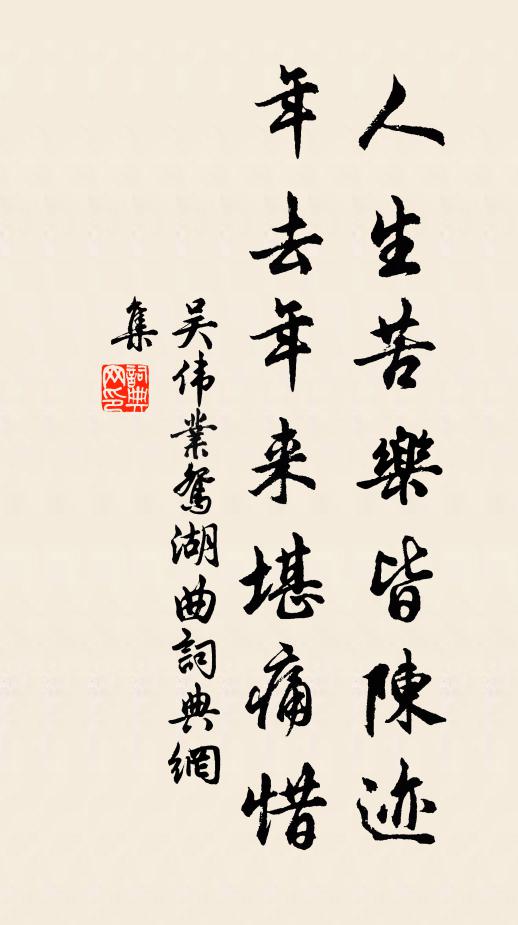 人生苦樂皆陳迹
年去年来堪痛惜
吴伟業鴛湖曲詞典網
集
詞典
网印